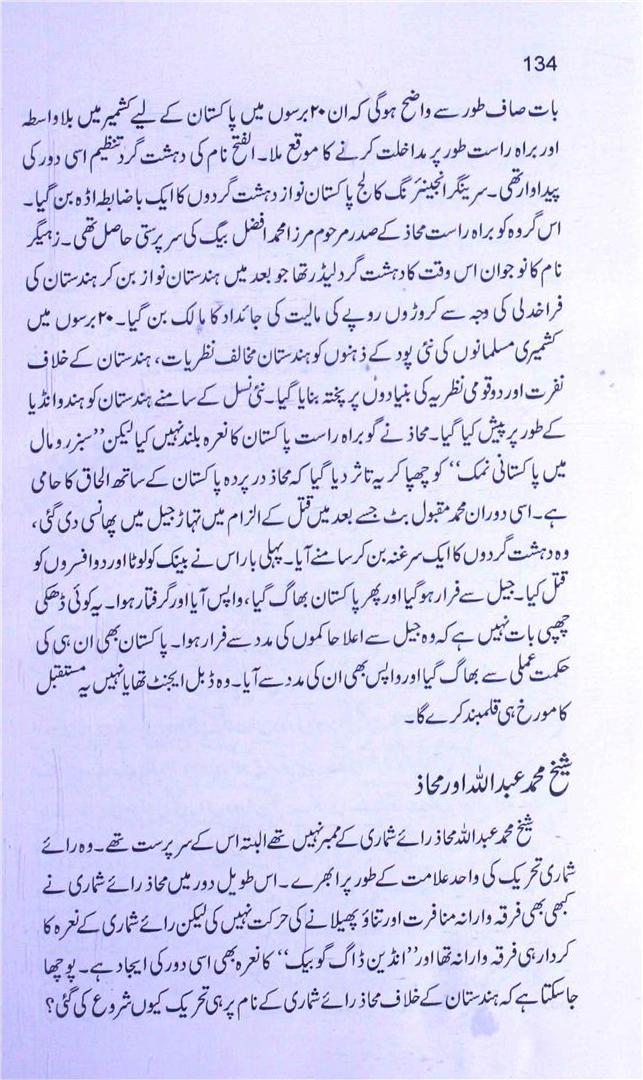 134
بات صاف طور سے واضح ہوگی کہ ان ۲۰ برسوں میں پاکستان کے لیے کشمیر میں بلاواسطہ
اور براہ راست طور پر مداخلت کرنے کا موقع ملا۔ الفتح نام کی دہشت گرد تنظیم اسی دور کی
پیداوار تھی۔ سرینگر انجینئرنگ کالج پاکستان نواز دہشت گردوں کا ایک باضابطہ اڈہ بن گیا۔
اس گروہ کو براہ راست محاذ کے صدر مرحوم مرزا محمد افضل بیگ کی سرپرستی حاصل تھی۔ زہگیر
نام کا نوجوان اس وقت کا دہشت گرد لیڈر تھا جو بعد میں ہندستان نواز بن کر ہندستان کی
فراخدلی کی وجہ سے کروڑوں روپے کی مالیت کی جائداد کا مالک بن گیا۔ ۲۰ برسوں میں
کشمیری مسلمانوں کی نئی پود کے ذہنوں کو ہندستان مخالف نظریات، ہندستان کے خلاف
نفرت اور دو قومی نظریہ کی بنیادوں پر پختہ بنایا گیا۔ نئی نسل کے سامنے ہندستان کو ہندو انڈیا
کے طور پر پیش کیا گیا۔ محاذ نے گو براہ راست پاکستان کا نعرہ بلند نہیں کیا لیکن ”سبز رومال
میں پاکستانی نمک“ کو چھپا کر یہ تاثر دیا گیا کہ محاذ درپردہ پاکستان کے ساتھ الحاق کا حامی
ہے۔ اسی دوران محمد مقبول بٹ جسے بعد میں قتل کے الزام میں تہاڑ جیل میں پھانسی دی گئی،
وہ دہشت گردوں کا ایک سرغنہ بن کر سامنے آیا۔ پہلی بار اس نے بینک کو لوٹا اور دو افسروں کو
قتل کیا۔ جیل سے فرار ہو گیا اور پھر پاکستان بھاگ گیا، واپس آیا اور گرفتار ہوا۔ یہ کوئی ڈھکی
چھپی بات نہیں ہے کہ وہ جیل سے اعلا حاکموں کی مدد سے فرار ہوا۔ پاکستان بھی ان ہی کی
حکمت عملی سے بھاگ گیا اور واپس بھی ان کی مدد سے آیا۔ وہ ڈبل ایجنٹ تھا یا نہیں یہ مستقبل
کا مورخ ہی قلمبند کرے گا۔
شیخ محمد عبداللہ اور محاذ
شیخ محمد عبداللہ محاذ رائے شماری کے ممبر نہیں تھے البتہ اس کے سرپرست تھے۔ وہ رائے
شماری تحریک کی واحد علامت کے طور پر ابھرے۔ اس طویل دور میں محاذ رائے شماری نے
کبھی بھی فرقہ وارانہ منافرت اور تناؤ پھیلانے کی حرکت نہیں کی لیکن رائے شماری کے نعرہ کا
کردار ہی فرقہ وارانہ تھا اور ”انڈین ڈاگ گو بیک“ کا نعرہ بھی اسی دور کی ایجاد ہے۔ پوچھا
جاسکتا ہے کہ ہندستان کے خلاف محاذ رائے شماری کے نام پر ہی تحریک کیوں شروع کی گئی؟